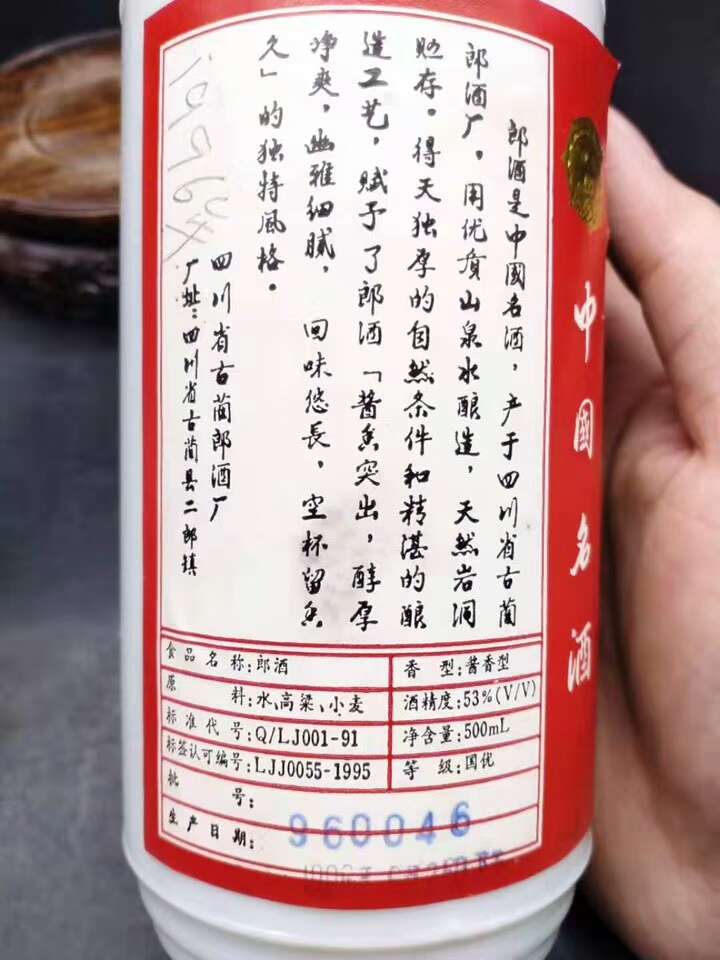 郎酒是中國名酒，产于四川省古蔺
郎酒厂。用优质山泉水酿造，天然岩洞
贮存。得天独厚的自然条件和精湛的酿
造工艺，赋予了郎酒「酱香突出，醇厚
净爽，幽雅细腻，回味悠長，空杯留香
久」的独特風格。
四川省古蔺郎酒厂
厂址：四川省古蔺县二郎镇
食品名称：郎酒
香型：酱香型
原料：水、高粱、小麦
酒精度：53%(V/V)
标准代号：Q/LJ001-91
净含量：500mL
标签认可编号：LJJ0055-1995
等级：国优
批号：
960046
生产日期：
中國名酒